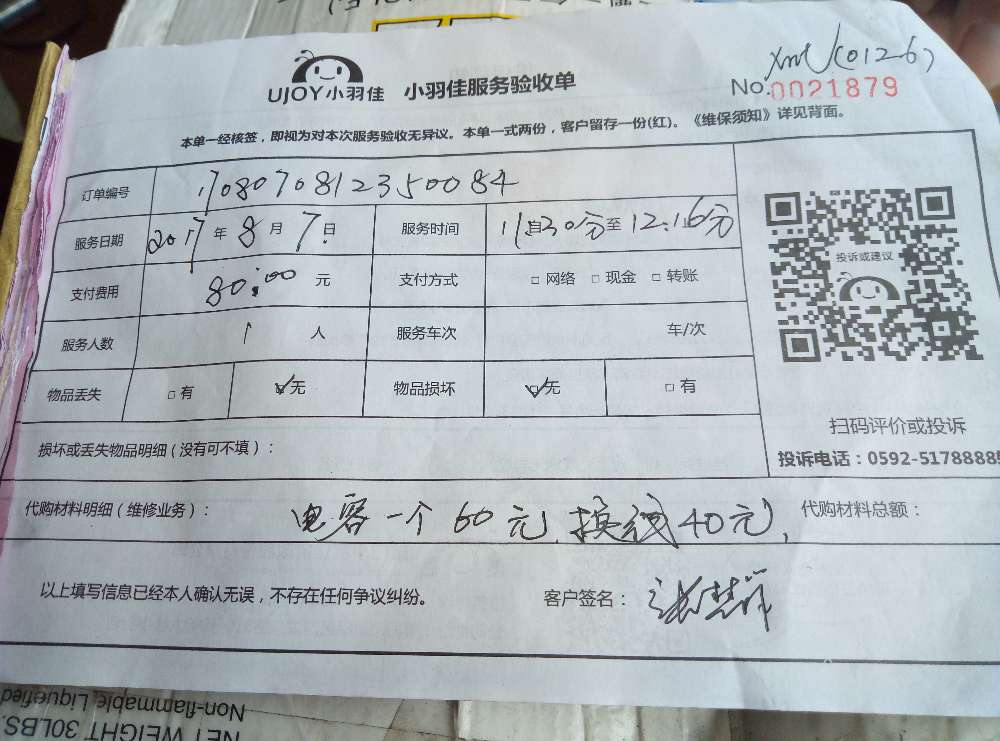 UJOY小羽佳 小羽佳服务验收单
No.0021879
本单一经核签，即视为对本次服务验收无异议。本单一式两份，客户留存一份(红)。《维保须知》详见背面。
订单编号 1708070812350084
服务日期 2017年8月7日 服务时间 11时30分至12:16分
支付费用 80.00元 支付方式 □网络 □现金 □转账
服务人数 1人 服务车次 车/次
物品丢失 □有 ☑无 物品损坏 ☑无 □有
投诉或建议
扫码评价或投诉
投诉电话：0592-51788885
损坏或丢失物品明细（没有可不填）：
代购材料明细（维修业务）： 电容一个60元，换线40元， 代购材料总额：
以上填写信息已经本人确认无误，不存在任何争议纠纷。 客户签名：
Non-flammable, Liquefied
NET WEIGHT 30LBS.